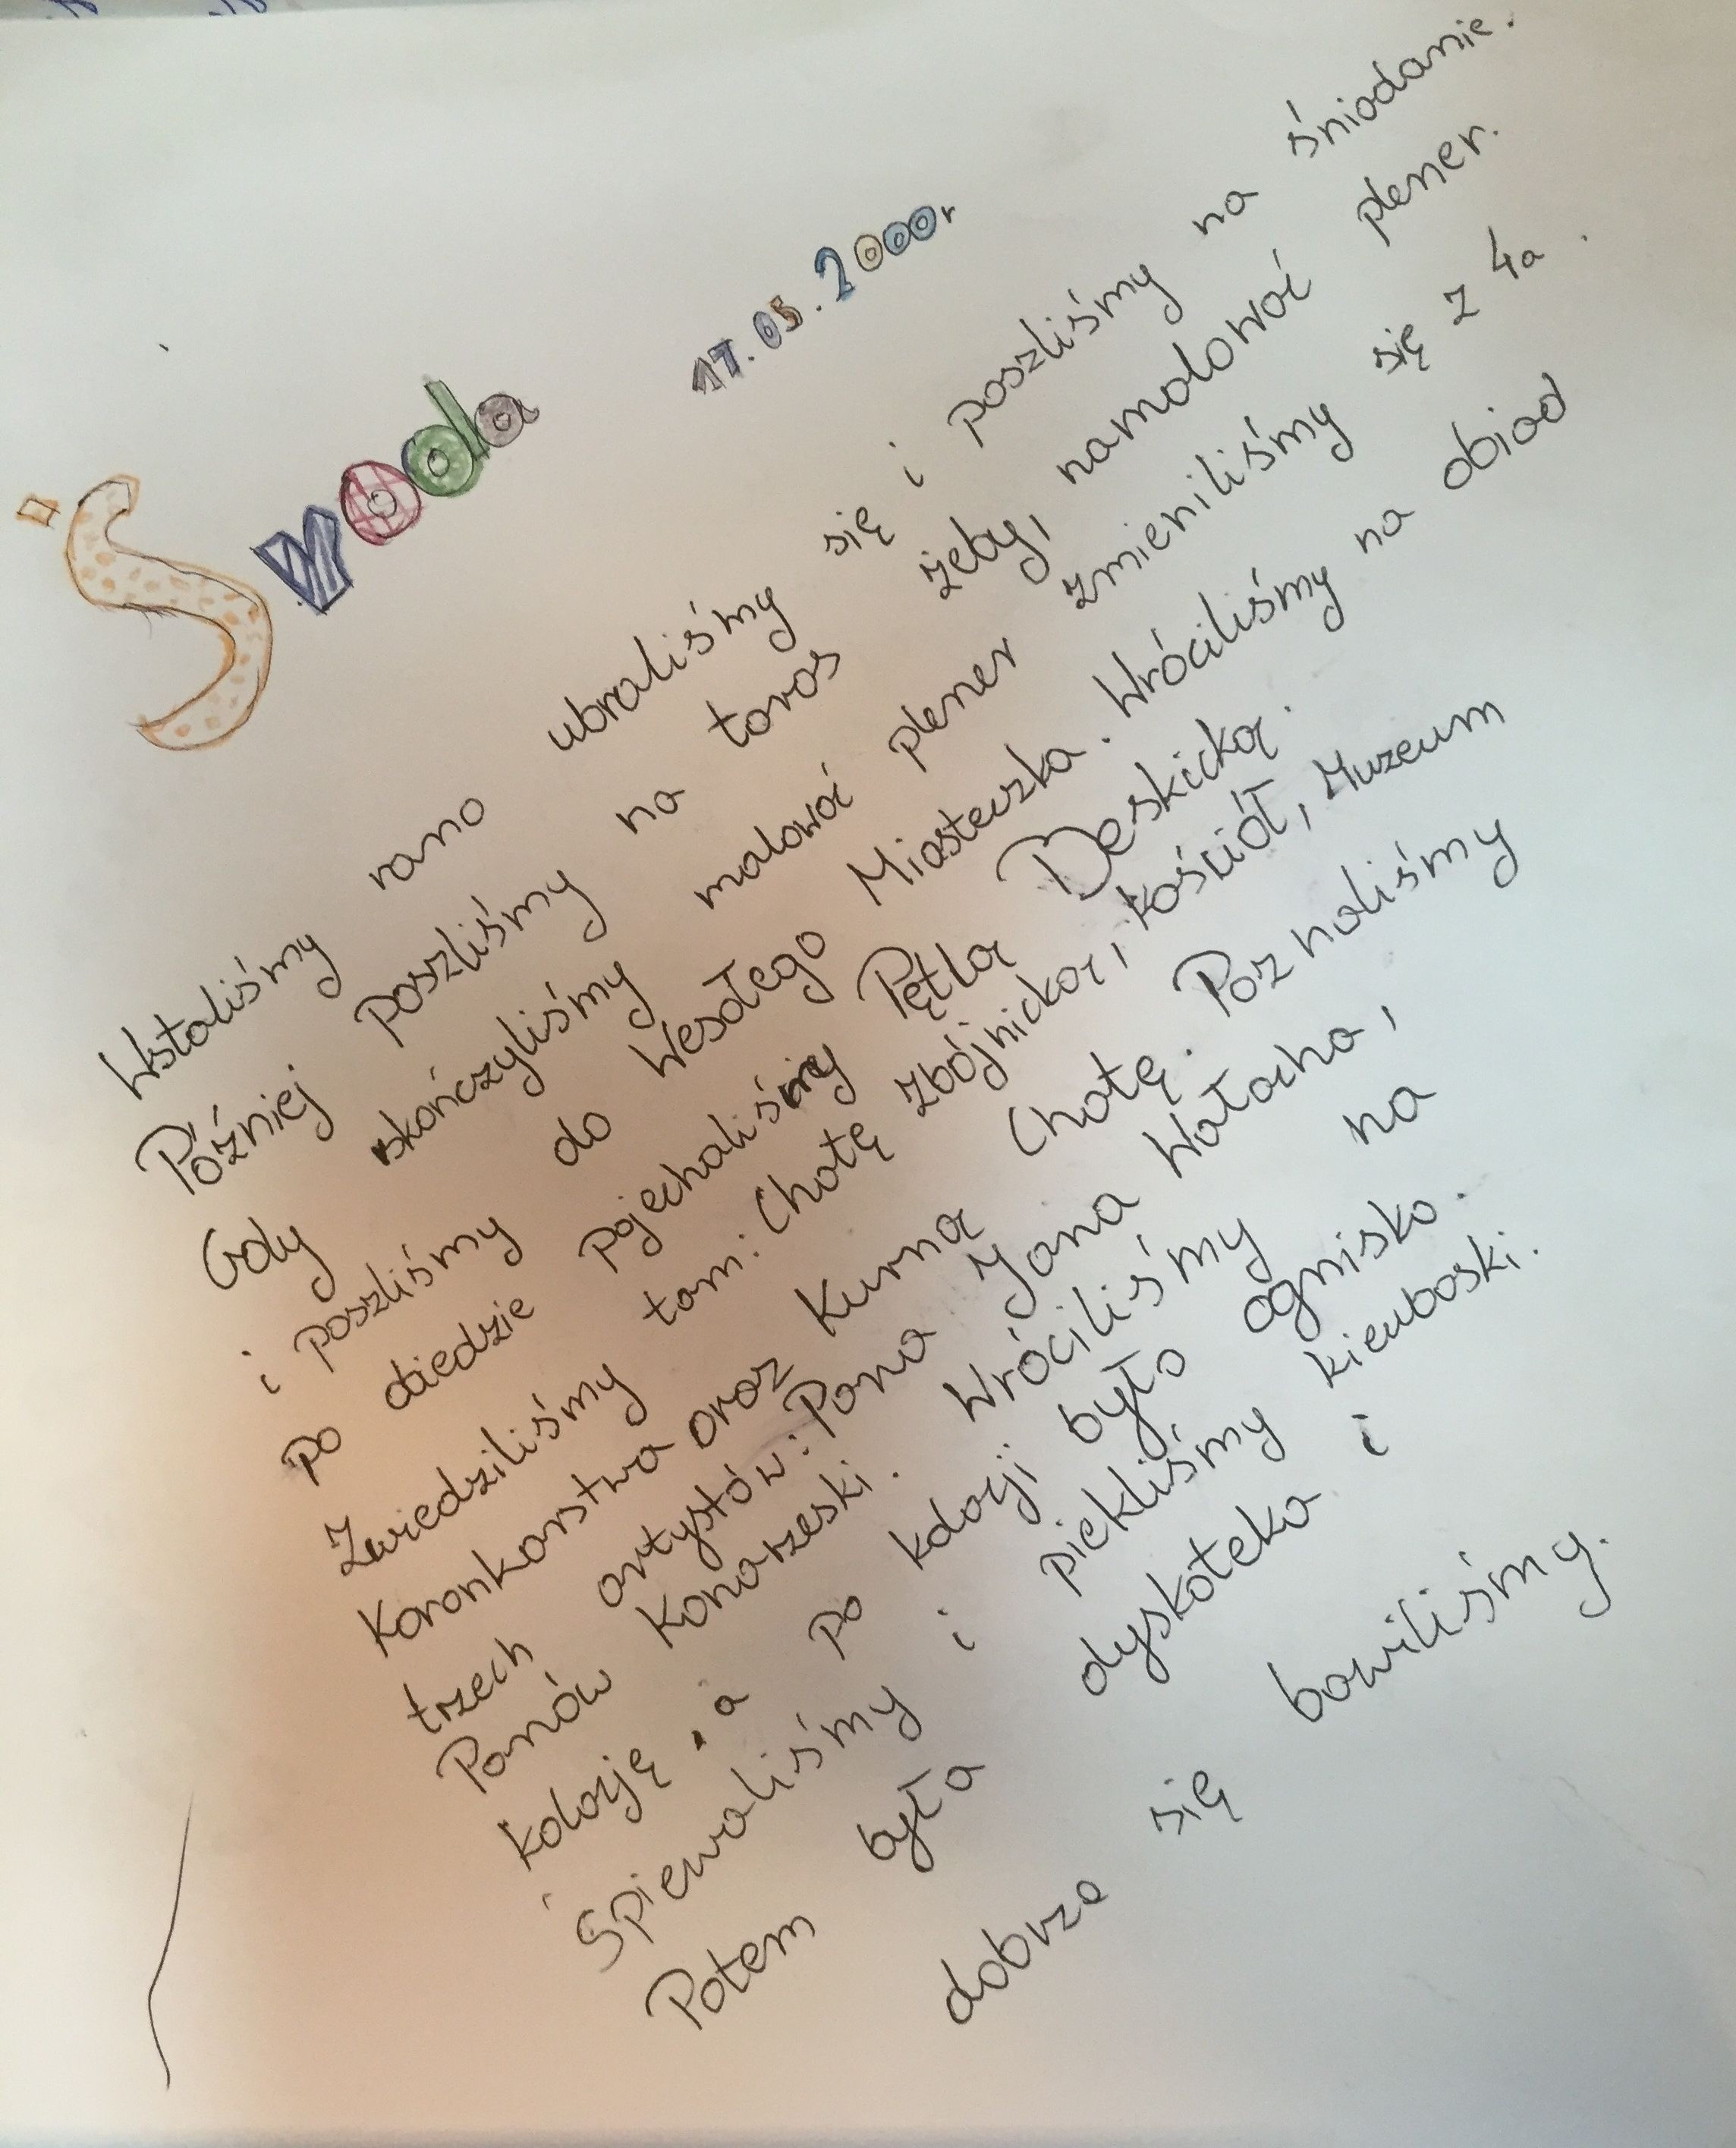 Środa 17.05.2000r
Wstaliśmy rano ubraliśmy się i poszliśmy na śniadanie.
Później poszliśmy na taras żeby, namalować plener.
Gdy skończyliśmy malować plener zmieniliśmy się z 4a.
i poszliśmy do Wesołego Miasteczka. Wróciliśmy na obiad
po obiedzie pojechaliśmy Pętlą Beskicką.
Zwiedziliśmy tam: Chatę zbójnicką, kościół, Muzeum
Koronkarstwa oraz Kurną Chatę. Poznaliśmy
trzech artystów: Pana Jana Wałacha,
Panów Konarzeski. Wróciliśmy na
kolację, a po kolacji było ognisko.
Śpiewaliśmy i piekliśmy kieuboski.
Potem była dyskoteka i
dobrze się bawiliśmy.